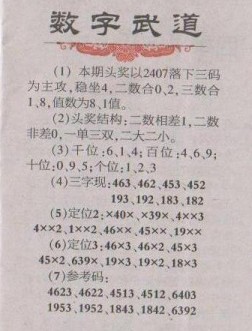 数字武道
(1) 本期头奖以2407落下三码
为主攻,稳坐4,二数合0、2,三数合
1、8,值数为8、1值。
(2)头奖结构:二数相差1,二数
非差0,一单三双,二大二小。
(3)千位:6、1、4;百位:4、6、9;
十位:0、9、5;个位:1、2、3
(4)三字现:463、462、453、452
193、192、183、182
(5)定位2:×40×、×39×、4××3
4××2、1××2、46××、45××、19××
(6)定位3:46×3、46×2、45×3
45×2、639×、19×3、19×2、18×3
(7)参考码:
4623、4622、4513、4512、6403
1953、1952、1843、1842、6392